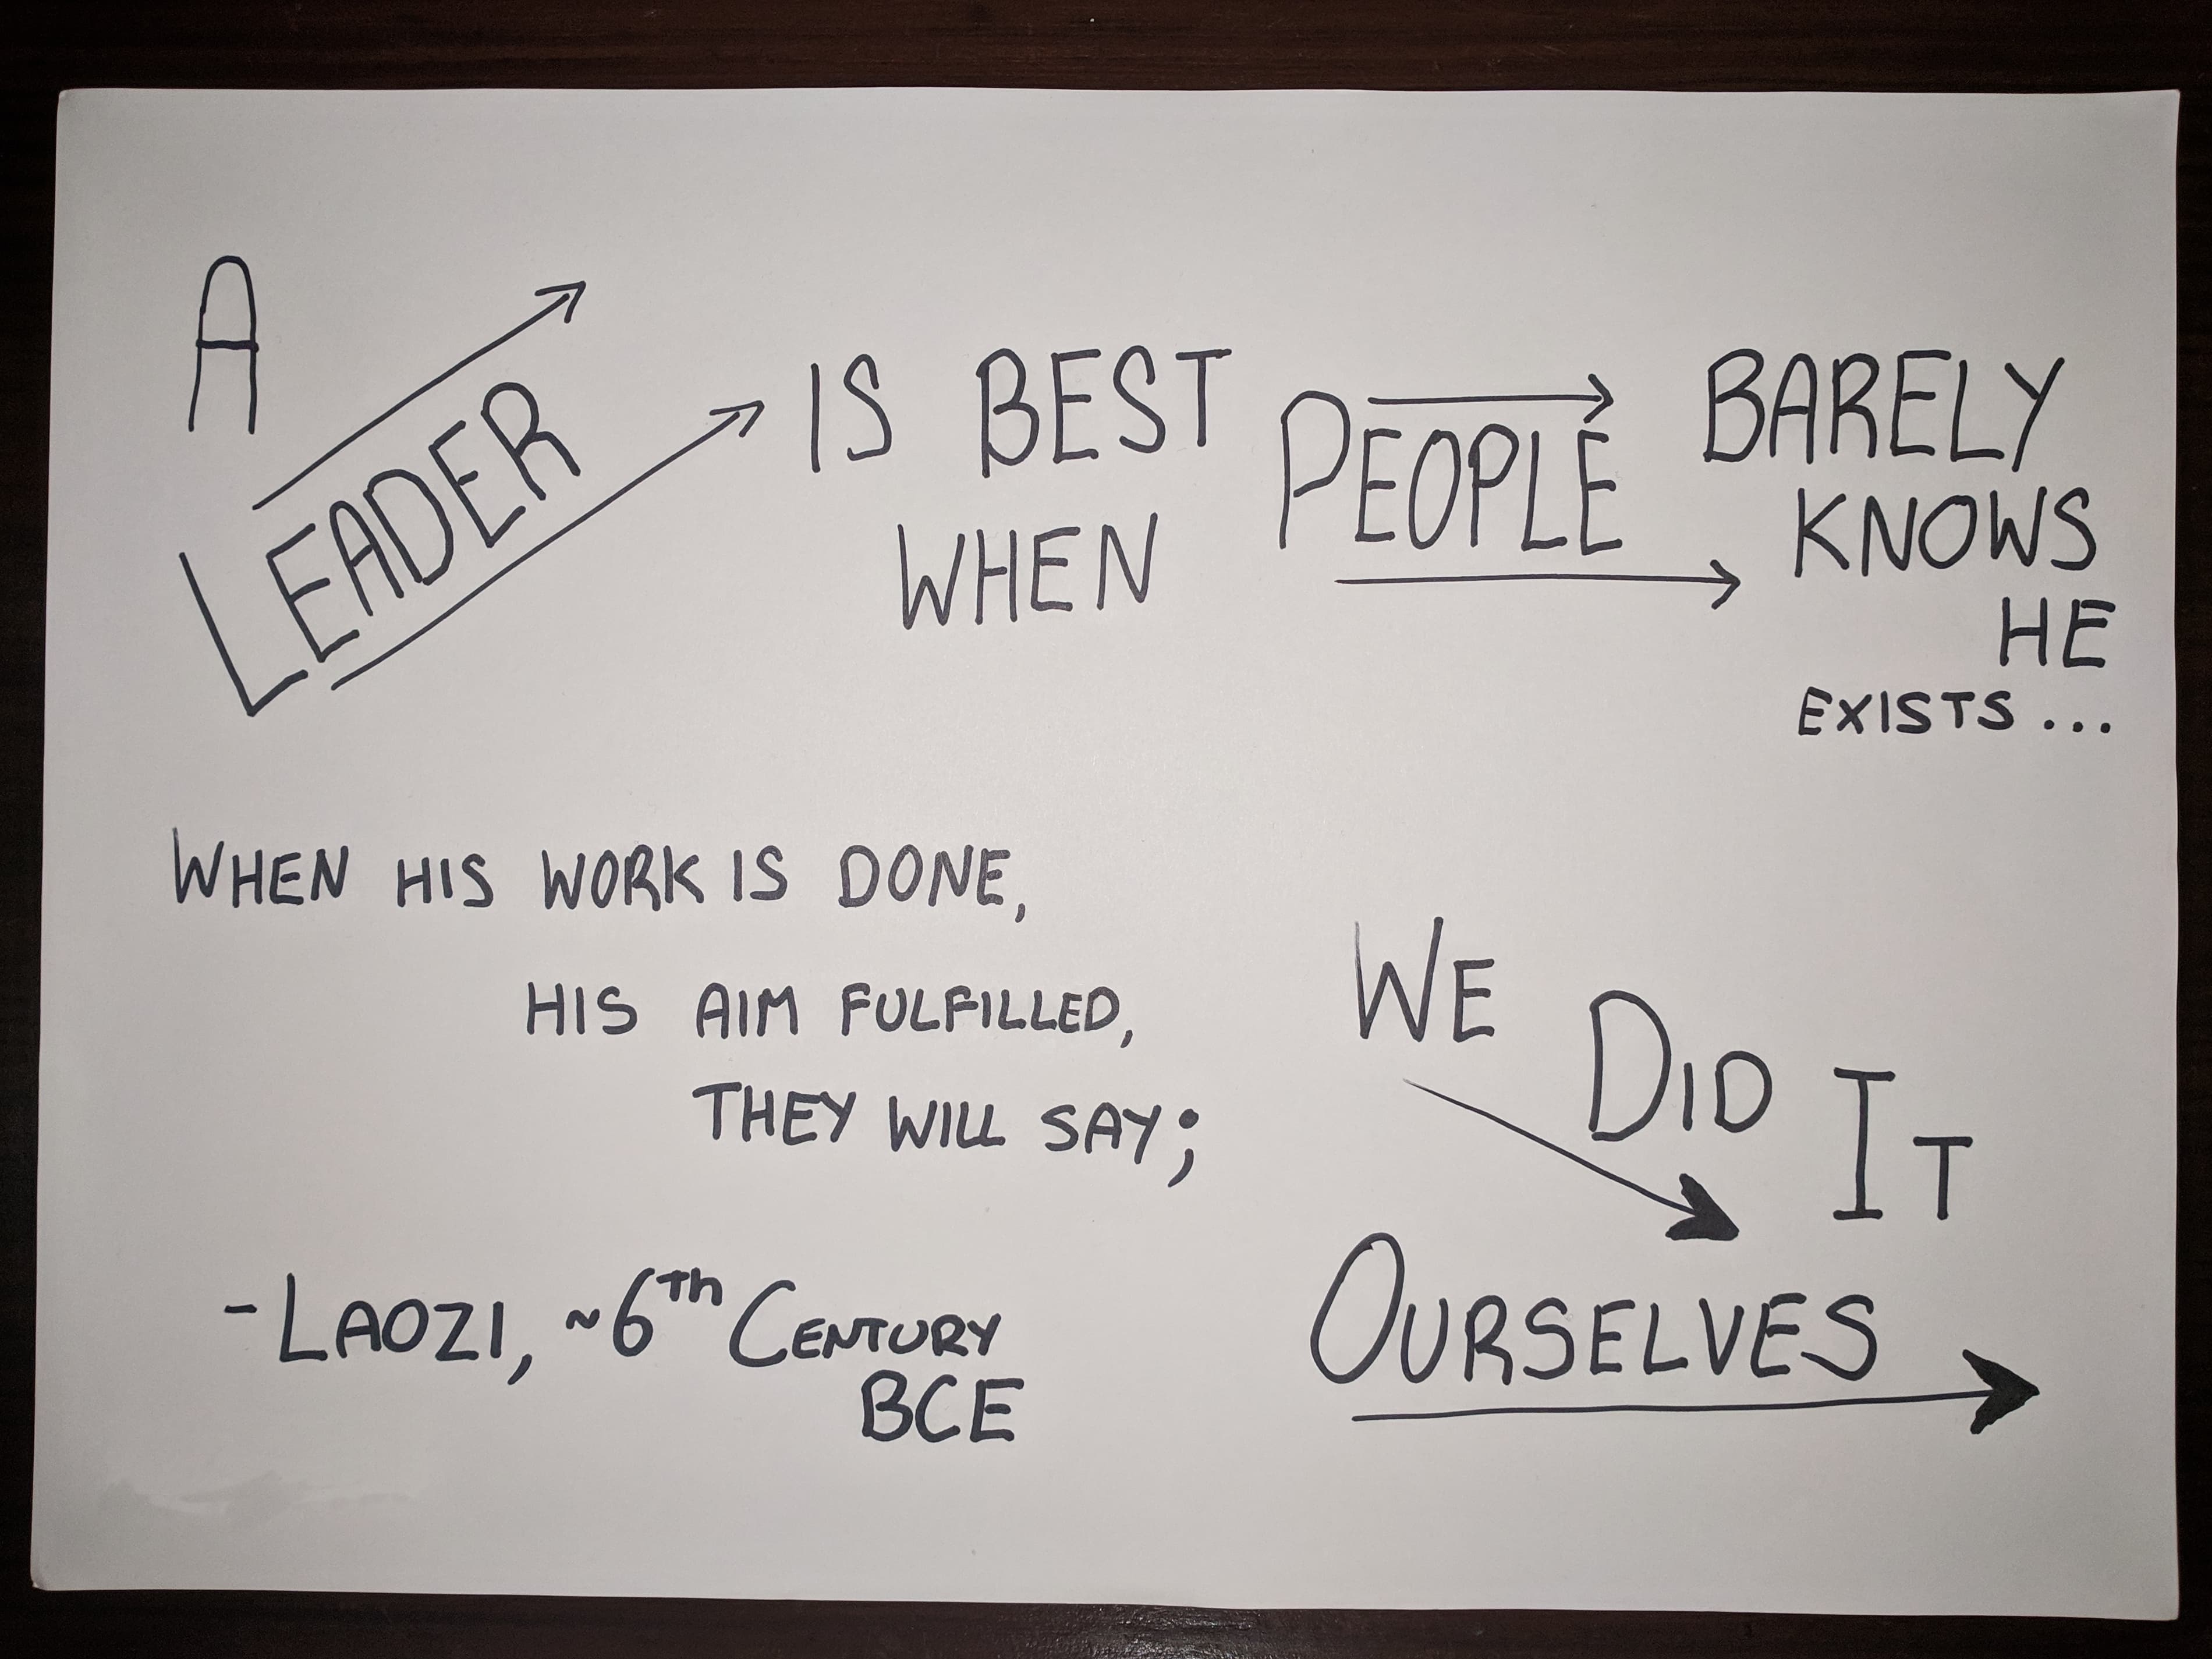 A
LEADER
IS BEST
WHEN
PEOPLE
BARELY
KNOWS
HE
EXISTS...
WHEN HIS WORK IS DONE,
HIS AIM FULFILLED,
THEY WILL SAY;
WE DID IT
OURSELVES
-LAOZI, ~6th CENTURY
BCE